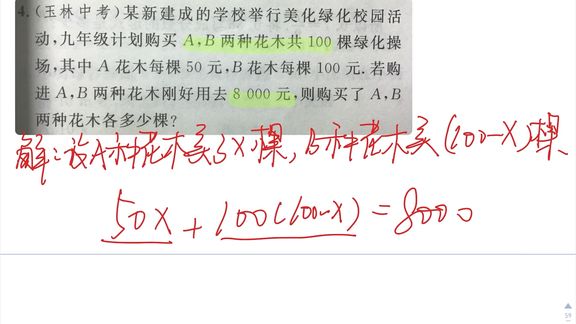 4.(玉林中考)某新建成的学校举行美化绿化校园活
动,九年级计划购买 A,B 两种花木共 100 棵绿化操
场,其中 A 花木每棵 50 元,B 花木每棵 100 元.若购
进 A,B 两种花木刚好用去 8 000 元,则购买了 A,B
两种花木各多少棵?
解:设A种花木买了x棵,B种花木买(100-x)棵
50x+100(100-x)=8000
59